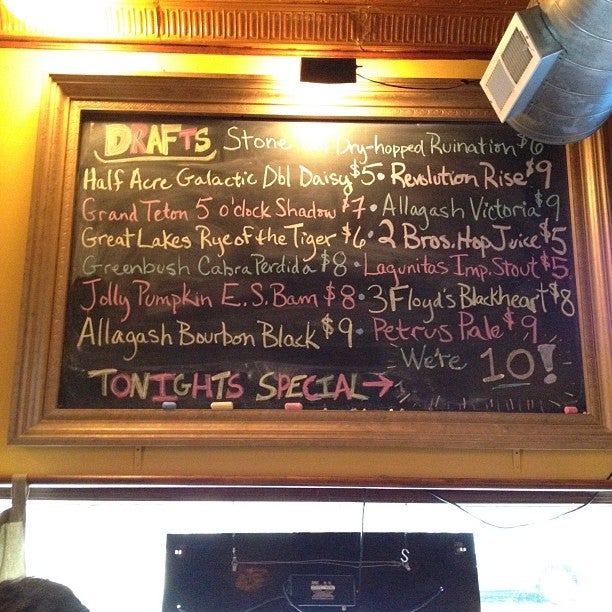 DRAFTS Stone Dry-hopped Ruination $6
Half Acre Galactic Dbl Daisy $5 • Revolution Rise $9
Grand Teton 5 o'clock Shadow $7 • Allagash Victoria $9
Great Lakes Rye of the Tiger $6 • 2 Bros. Hop Juice $5
Greenbush Cabra Perdida $8 • Lagunitas Imp. Stout $5
Jolly Pumpkin E.S. Bam $8 • 3 Floyd's Blackheart $8
Allagash Bourbon Black $9 • Petrus Pale $9
We're 10!
TONIGHTS SPECIAL →